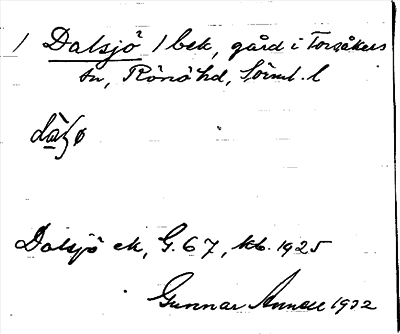 / Dalsjö / bek, gård i Torsåkers
sn, Rönö hd, Sörml. l
Dalsjö ek, G. 67, kb. 1925
Gunnar Annell 1932